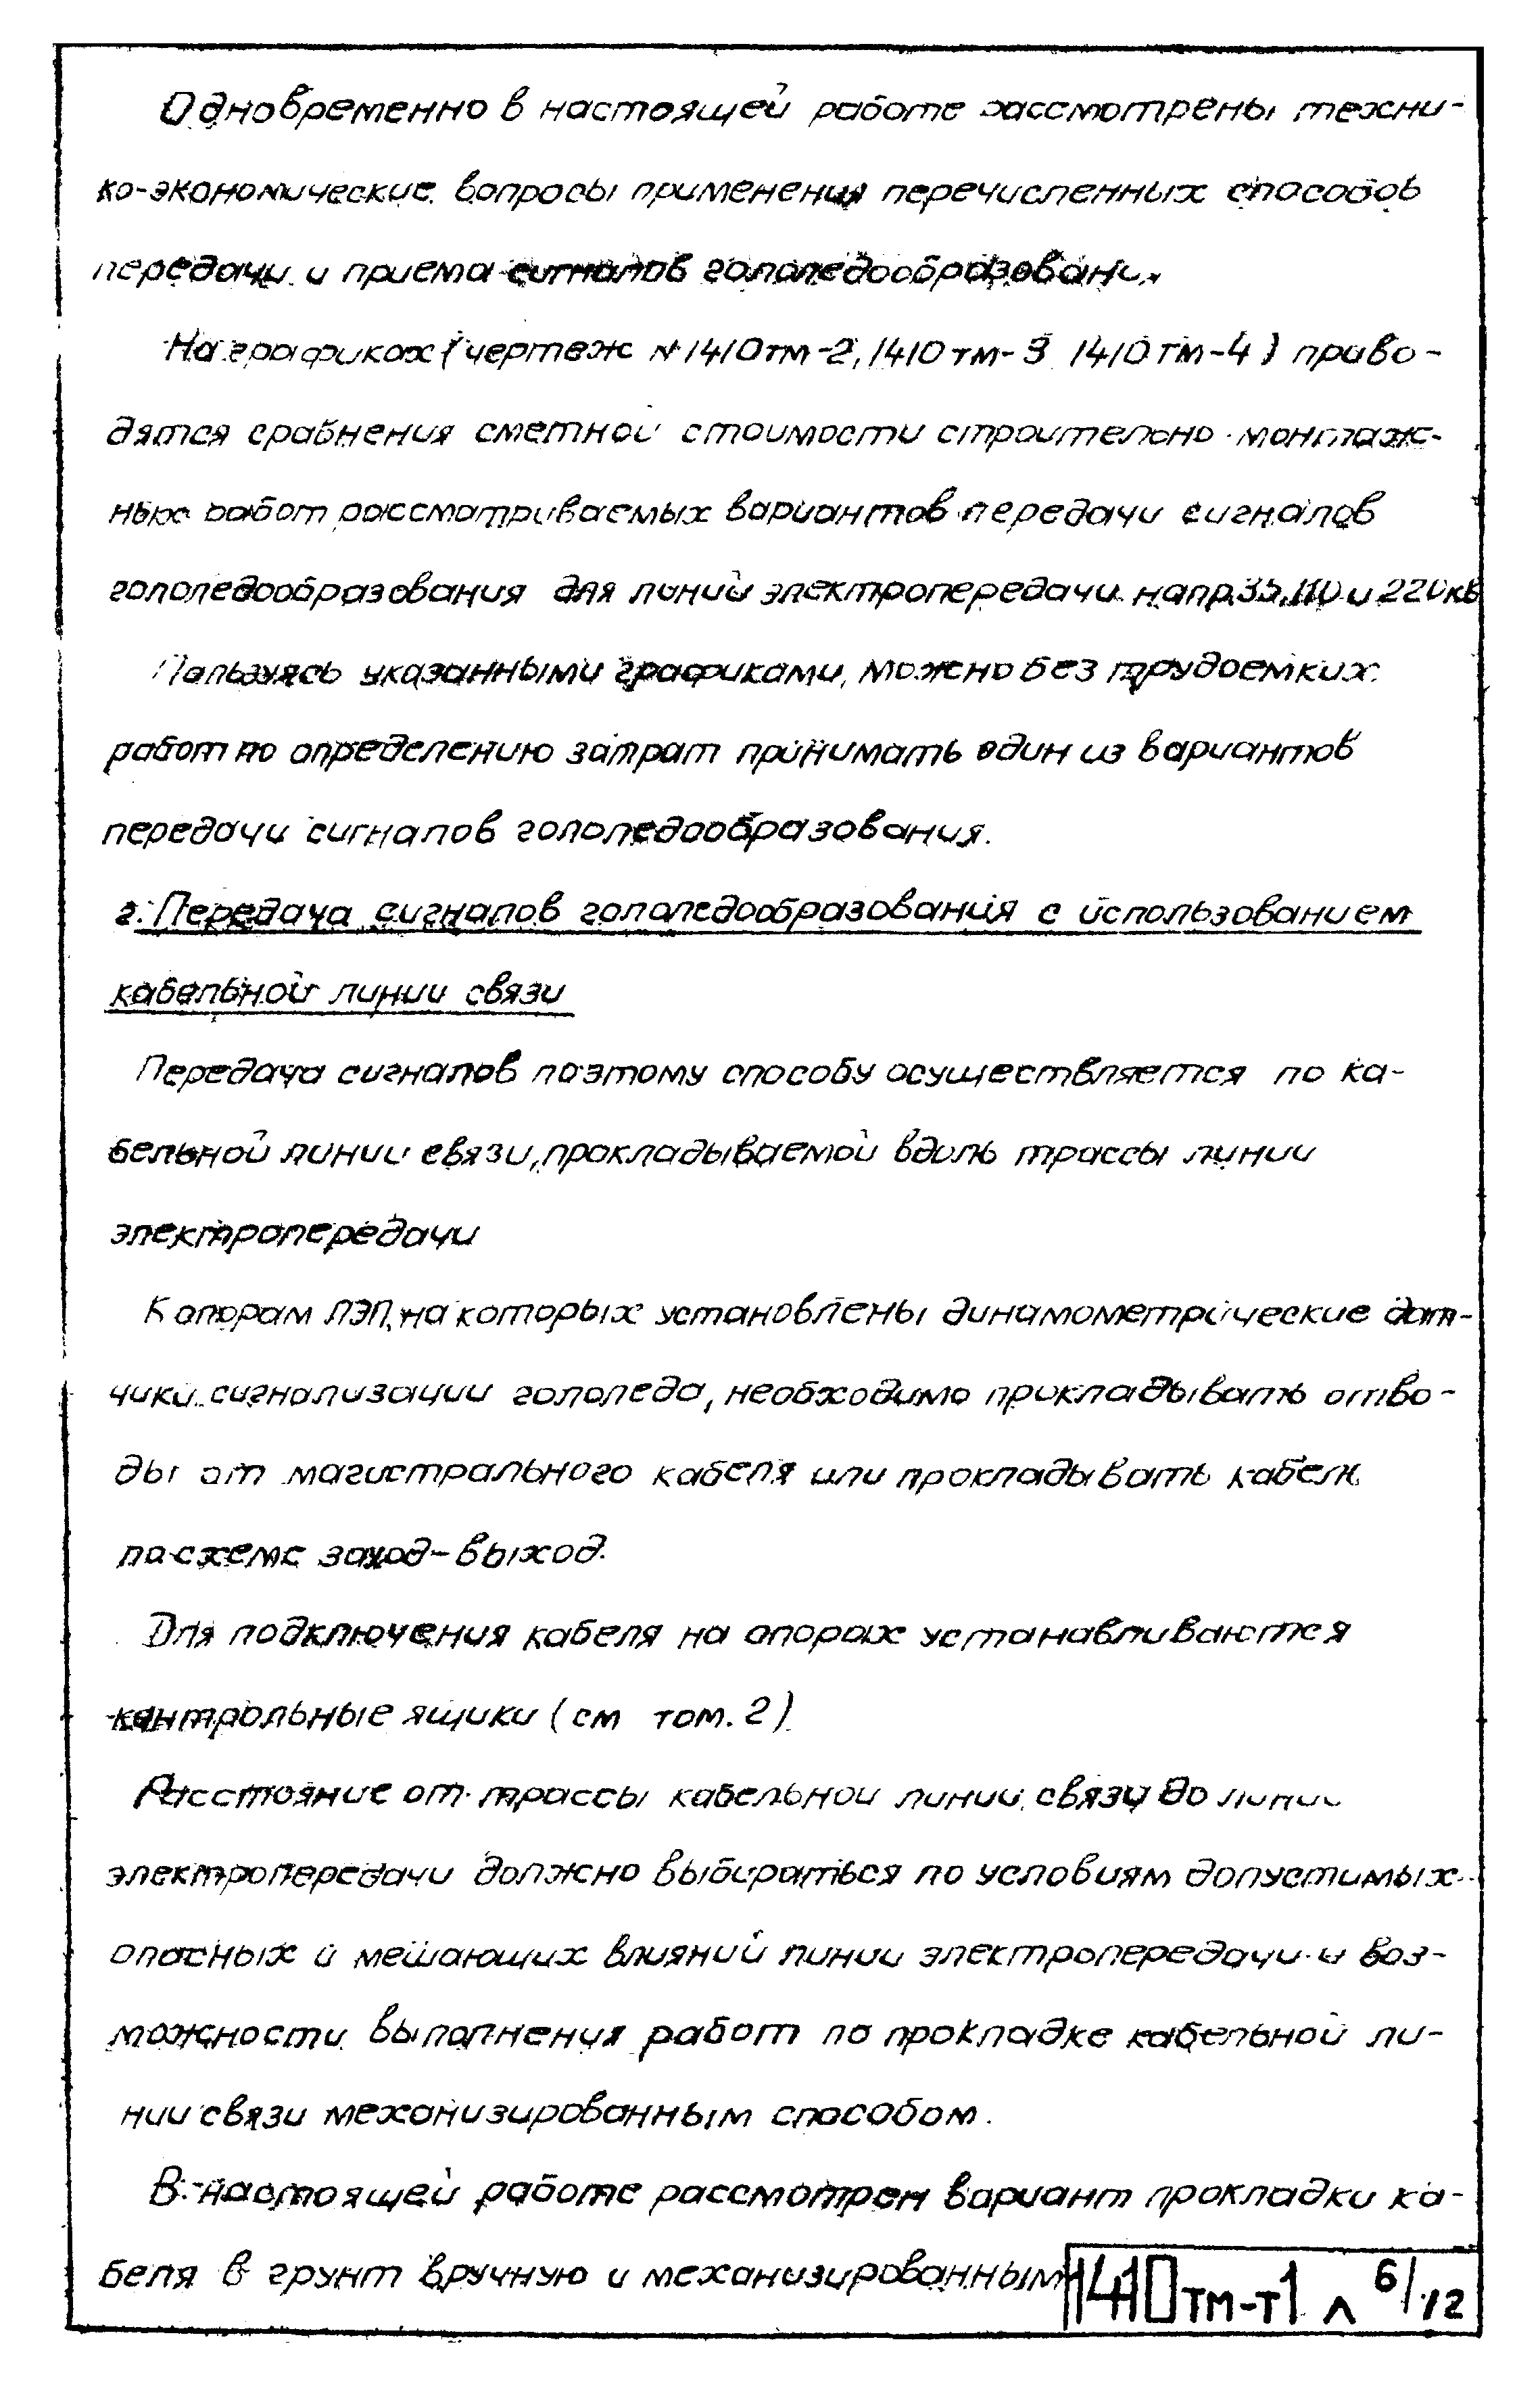 Одновременно в настоящей работе рассмотрены техни-
ко-экономические вопросы применения перечисленных способов
передачи и приема сигналов гололедообразования
На графиках (чертеж N 1410тм-2, 1410тм-3 1410тм-4) приво-
дятся сравнения сметной стоимости строительно-монтаж-
ных работ рассматриваемых вариантов передачи сигналов
гололедообразования для линий электропередачи напр. 35, 110 и 220кв
Пользуясь указанными графиками, можно без трудоемких
работ по определению затрат принимать один из вариантов
передачи сигналов гололедообразования.
г. Передача сигналов гололедообразования с использованием
кабельной линии связи
Передача сигналов по этому способу осуществляется по ка-
бельной линии связи, прокладываемой вдоль трассы линии
электропередачи
К опорам ЛЭП, на которых установлены динамометрические дат-
чики сигнализации гололеда, необходимо прокладывать отво-
ды от магистрального кабеля или прокладывать кабель
по схеме заход-выход.
Для подключения кабеля на опорах устанавливаются
контрольные ящики (см том. 2)
Расстояние от трассы кабельной линии связи до линии
электропередачи должно выбираться по условиям допустимых
опасных и мешающих влияний линии электропередачи и воз-
можности выполнения работ по прокладке кабельной ли-
нии связи механизированным способом.
В настоящей работе рассмотрен вариант прокладки ка-
беля в грунт вручную и механизированным
1410тм-т1 л 6/12